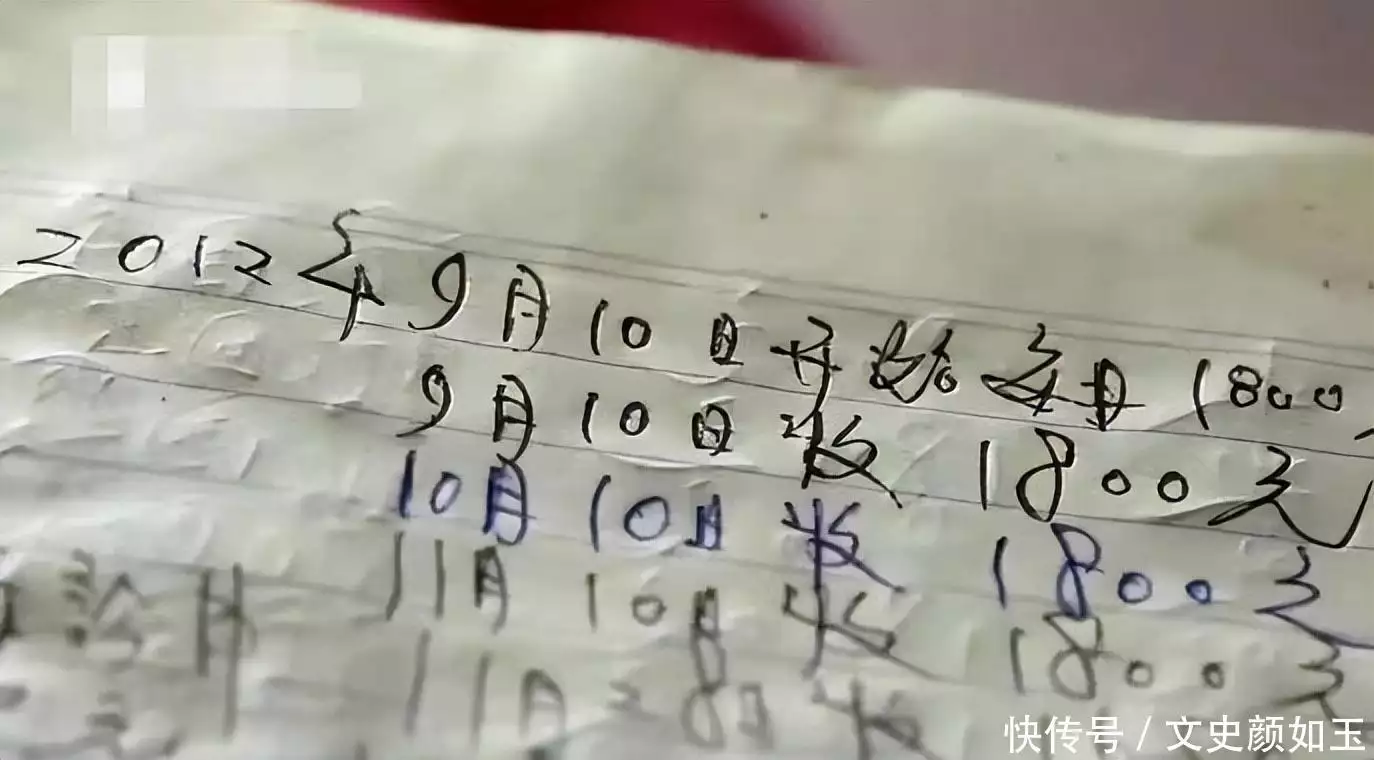 2012年9月10日开始每月1800
9月10日收1800元
10月10日收1800元
11月10日收1800元
11月28日收
快传号 / 文史颜如玉